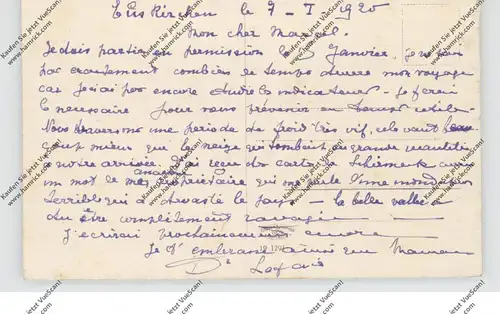 Euskirchen le 7 - I 1920
Mon cher Marcel.
Je dois partir en permission le Janvier, je ne sais
pas exactement combien de temps durera mon voyage
car je n'ai pas encore étudié les indicateurs - je ferai
le nécessaire pour vous prévenir en temps utile.
Nous traversons une période de froid très vif, cela vaut beau
coup mieux que la neige qui tombait en grande quantité
à notre arrivée. J'ai reçu des cartes de Schirmeck avec
un mot de mon ancien propriétaire qui me parle d'une inondation
terrible qui a dévasté le pays - la belle vallée
du être complètement ravagée
J'écrirai prochainement encore
Je t'embrasse ainsi que Maman